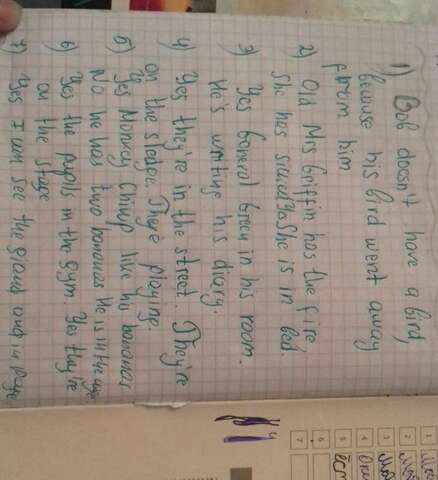 1) Bob doesn't have a bird,
because his bird went away
from him
2) Old Mrs Griffin has the fire
She has She is in bed
3) Yes General Green in his room.
He's writing his diary.
4) Yes they're in the street. They're
on the sledge. They playing.
5) Yes Monkey Chimp like his bananas
No he has two bananas He is
6) Yes the pupils in the gym. Yes they're
on the stage
7) Yes I can see the grand and page